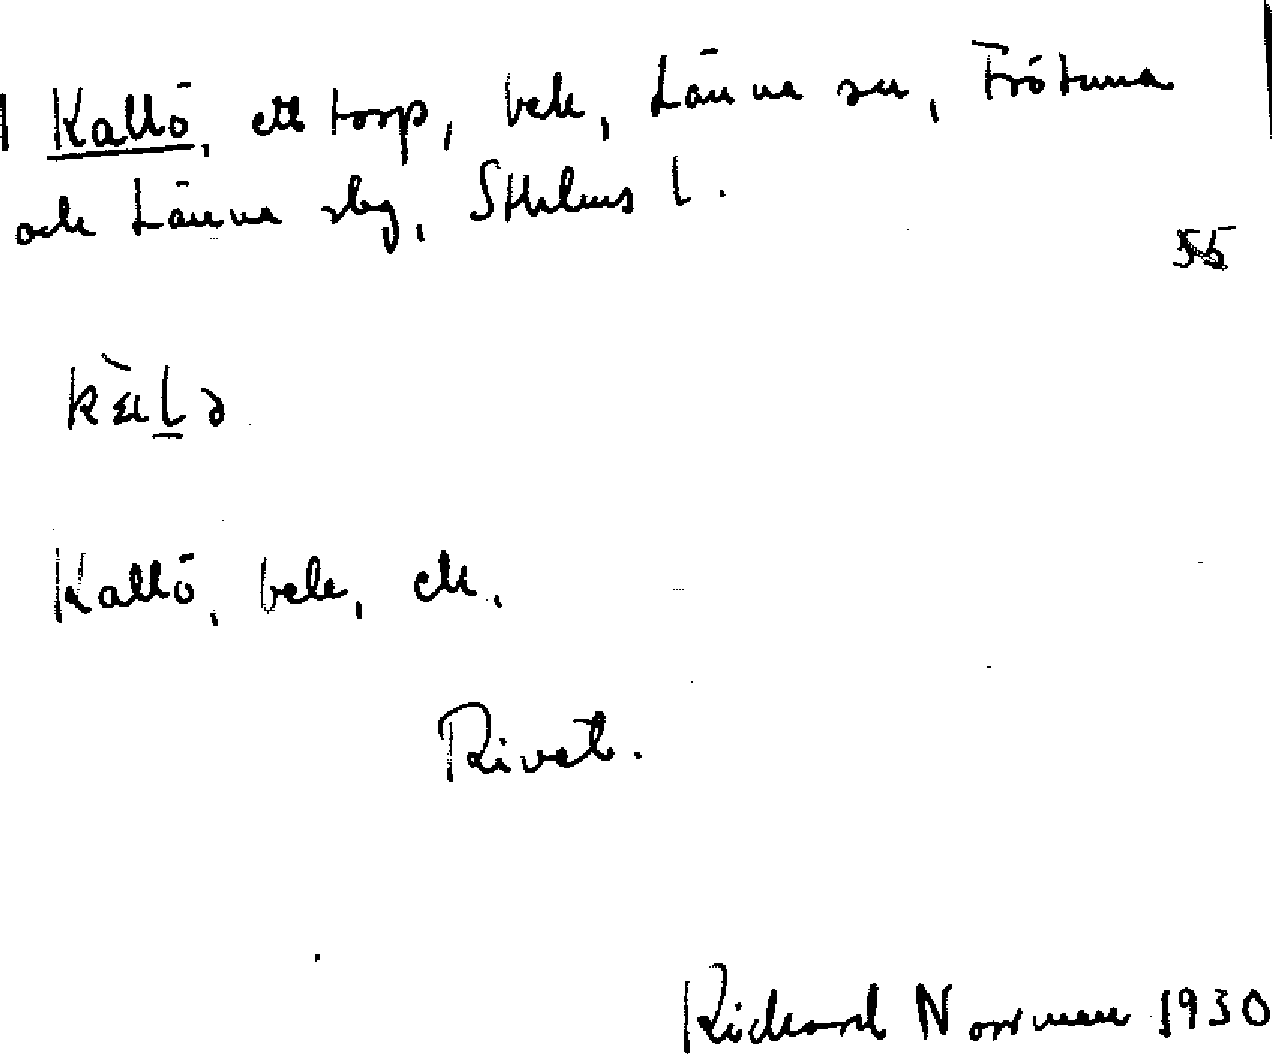 Kallö, ett torp, bek, Länna sn, Frötuna
och Länna slg, Sthlms l.
55
Kallö, bek, ek.
Rivet.
Richard Norrman 1930